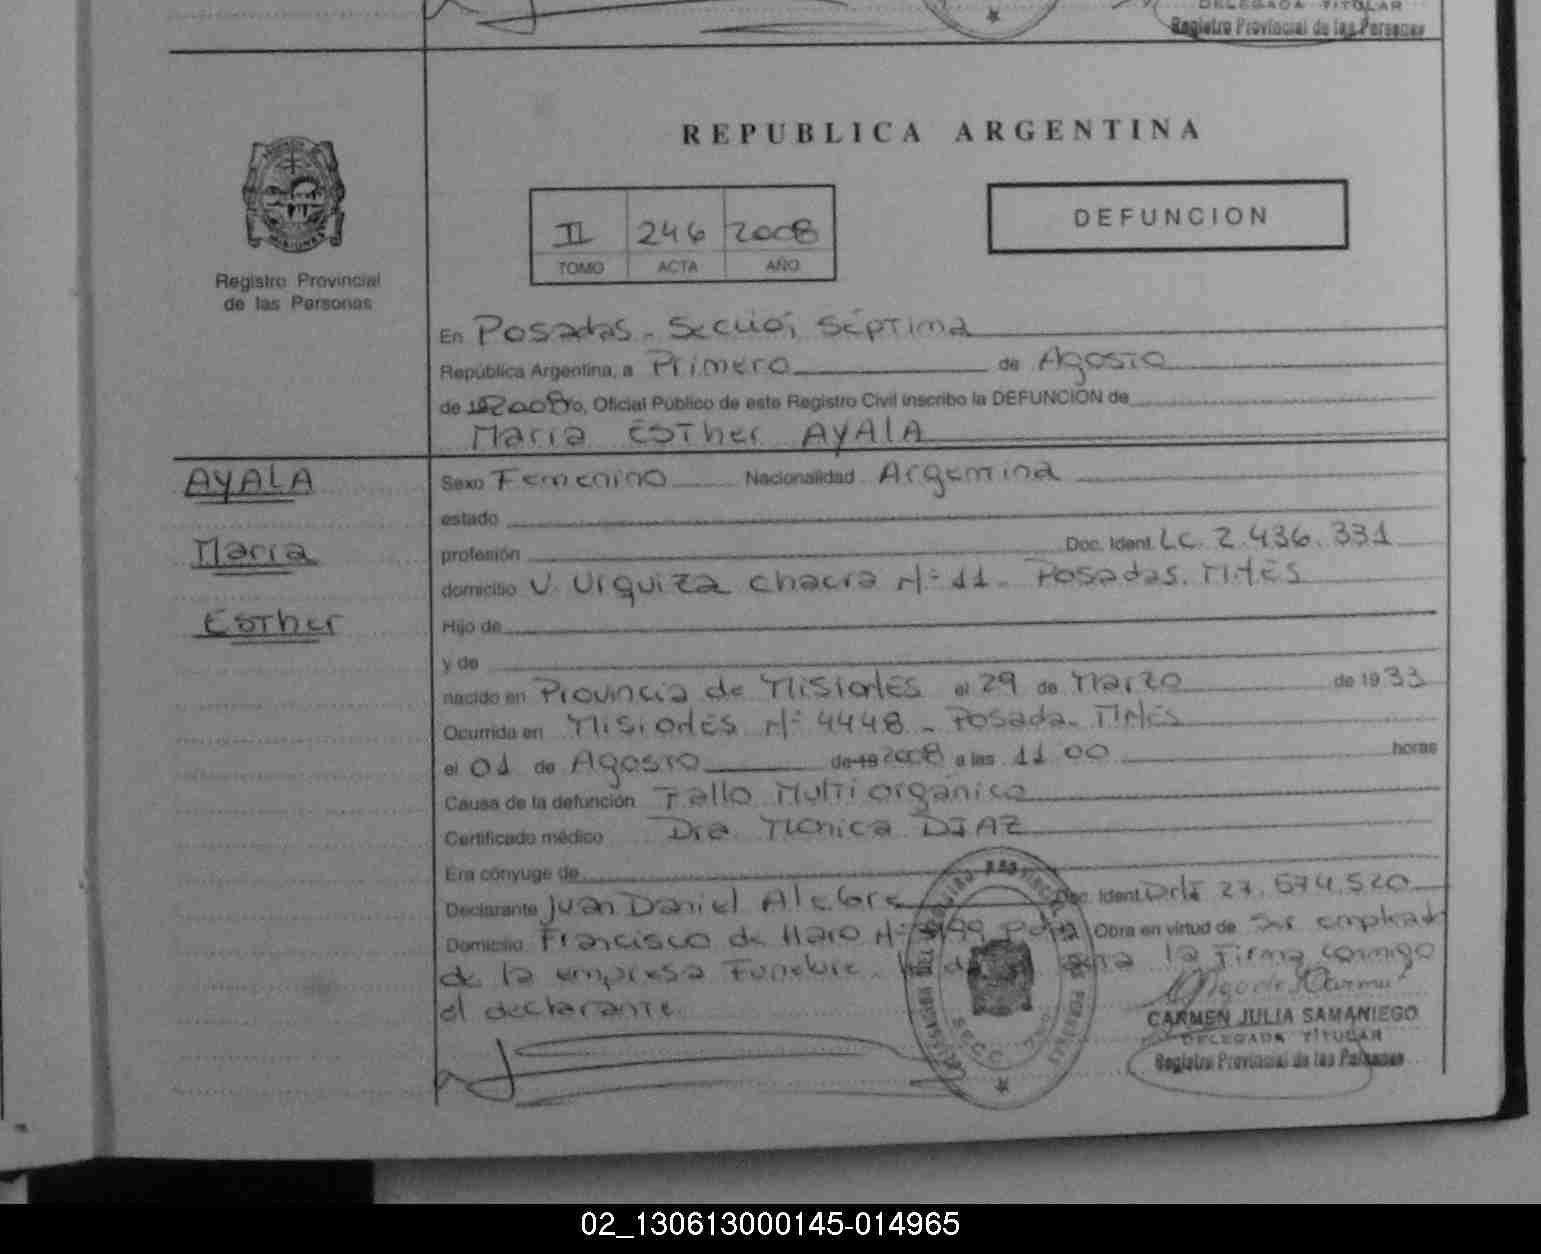 DELEGADA TITULAR
Registro Provincial de las Personas
REPUBLICA ARGENTINA
II 246 2008
TOMO ACTA AÑO
DEFUNCION
Registro Provincial
de las Personas
En Posadas - Sección Séptima
República Argentina, a Primero de Agosto
de 2008 yo, Oficial Público de este Registro Civil inscribo la DEFUNCION de
Maria Esther AYALA
AYALA
Maria
Esther
Sexo Femenino Nacionalidad Argentina
estado
profesión Doc. Ident. LC. 2.436.331
domicilio V. Urquiza chacra Nº 11 - Posadas. Mnes
Hijo de
y de
nacido en Provincia de Misiones el 29 de Marzo de 1933
Ocurrida en Misiones Nº 4448 - Posada - Mnes
el 01 de Agosto de 19 2008 a las 11 00 horas
Causa de la defunción Fallo Multiorgánico
Certificado médico Dra. Monica DIAZ
Era cónyuge de
Declarante Juan Daniel Alegre Doc. Ident. DNI 27.674.520
Domicilio Francisco de Haro Nº Obra en virtud de Ser empleado
de la empresa Funebre. la Firma conmigo
el declarante
CARMEN JULIA SAMANIEGO
DELEGADA TITULAR
Registro Provincial de las Personas
02_130613000145-014965